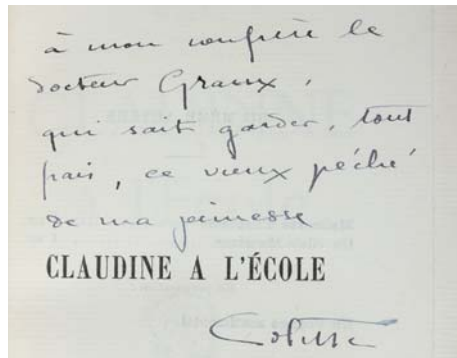 à mon confrère le
docteur Graux,
qui sait garder, tout
frais, ce vieux péché
de ma jeunesse
CLAUDINE A L'ÉCOLE
Colette